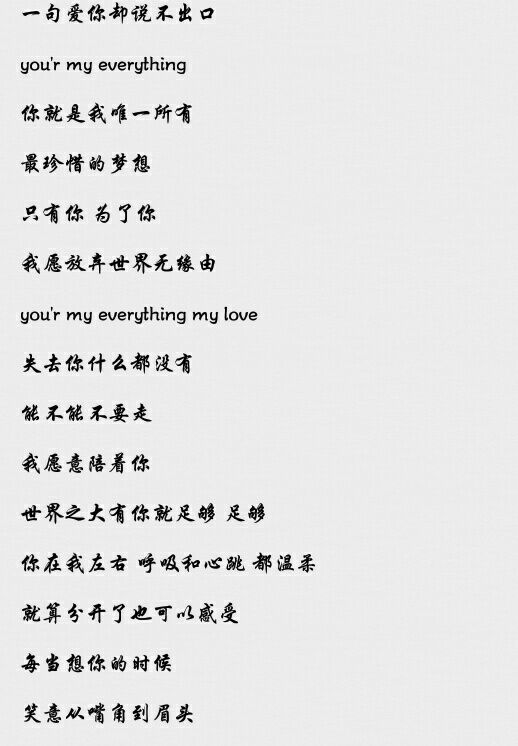 一句爱你却说不出口
you'r my everything
你就是我唯一所有
最珍惜的梦想
只有你 为了你
我愿放弃世界无缘由
you'r my everything my love
失去你什么都没有
能不能不要走
我愿意陪着你
世界之大有你就足够 足够
你在我左右 呼吸和心跳 都温柔
就算分开了也可以感受
每当想你的时候
笑意从嘴角到眉头